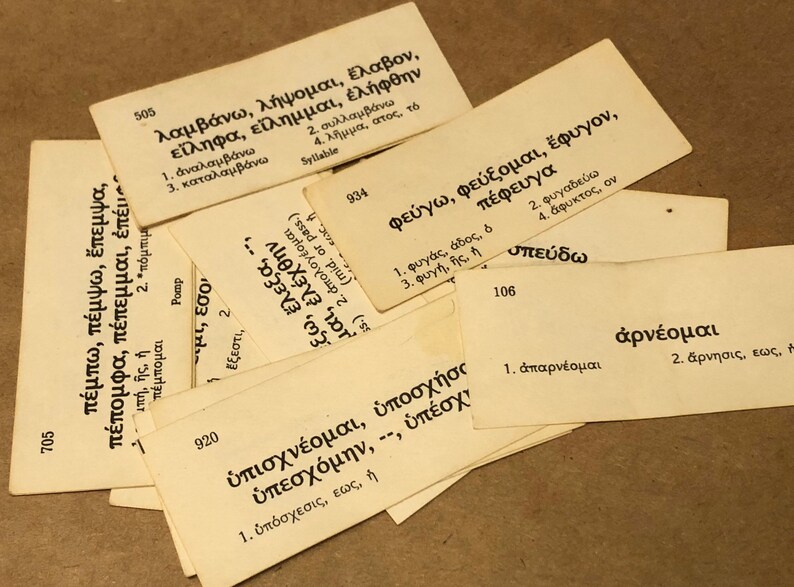 505
λαμβάνω, λήψομαι, ἔλαβον,
εἴληφα, εἴλημμαι, ἐλήφθην
1. ἀναλαμβάνω 2. συλλαμβάνω
3. καταλαμβάνω 4. λῆμμα, ατος, τό
Syllable
934
φεύγω, φεύξομαι, ἔφυγον,
πέφευγα
1. φυγάς, άδος, ὁ 2. φυγαδεύω
3. φυγή, ῆς, ἡ 4. ἄφυκτος, ον
705
πέμπω, πέμψω, ἔπεμψα,
πέπομφα, πέπεμμαι,
2. *πόμπιμ
Pomp
ἔξεστι,
ἔλεξα, --,
ἐλέχθην
2. ἀπολογέομαι
(mid. or pass.)
σπεύδω
106
ἀρνέομαι
1. ἀπαρνέομαι 2. ἄρνησις, εως, ἡ
920
ὑπισχνέομαι, ὑποσχήσο
ὑπεσχόμην, --, ὑπέσχη
1. ὑπόσχεσις, εως, ἡ